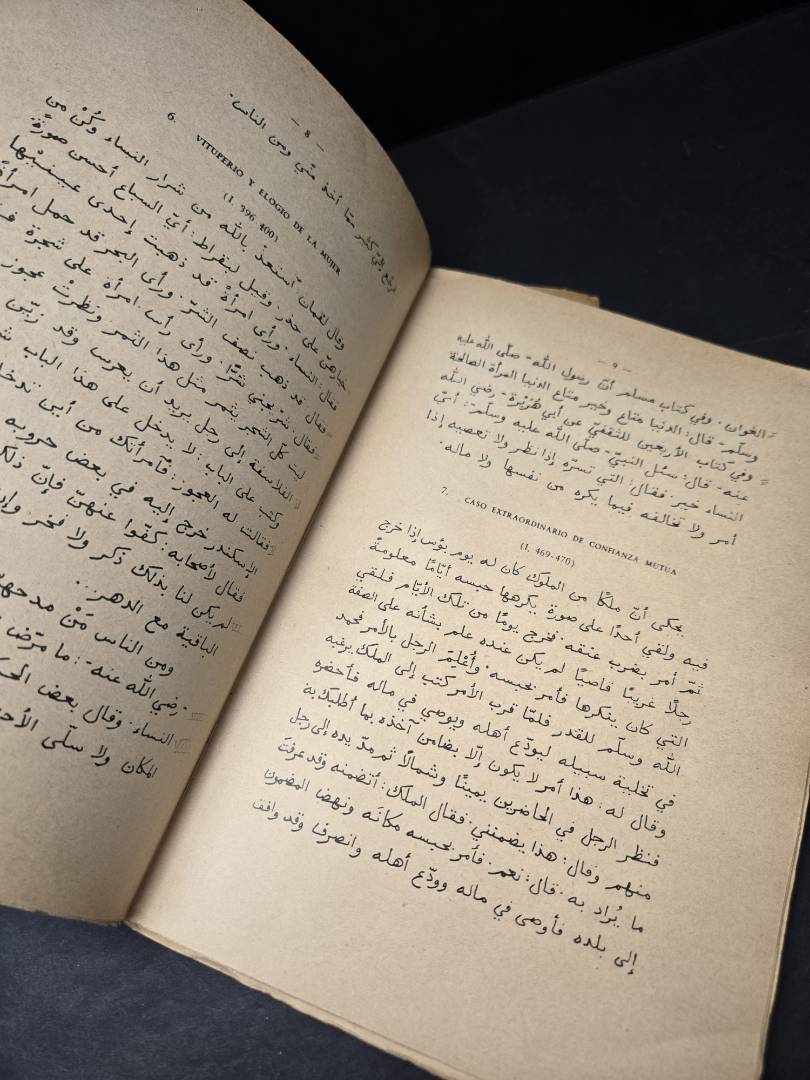 — 8 —
فرجع إليّ كثير ممّا أخذ منّي ومن الناس .
6. VITUPERIO Y ELOGIO DE LA MUJER
(I. 396-400)
وقال لقمان: استعذْ بالله من شرار النساء وكُنْ من
خيارهنّ على حذر. وقيل لبقراط: أيّ السباع أحسن صورةً؟
فقال: النساء. ورأى امرأةً قد ذهبت إحدى عينيْها
فقال: قد ذهب نصف الشرّ. ورأى البحر قد حمل امرأةً
فقال: شرّ يجني شرًّا. ورأى رأس امرأة على شجرة
ليت كلّ الشجر يثمر مثل هذا الثمر ونظرتْ عجوز
الفلاسفة إلى رجل يريد أن يعرس وقد زيّن
وكتب على الباب: لا يدخل على هذا الباب
فقالت له العجوز: فامرأتك من أين تدخل
الإسكندر خرج إليه في بعض حروبه
فقال لأصحابه: كفّوا عنهنّ فإنّ ذلك
لم يكن لنا بذلك ذكر ولا فخر وإن
الباقية مع الدهر...
ومن الناس مَنْ مدحهنّ
رضي الله عنه -: ما
النساء. وقال بعض
المكان ولا سلّى
— 9 —
الغوان. وفي كتاب مسلم أنّ رسول الله - صلّى الله عليه
وسلّم - قال: الدنيا متاع وخير متاع الدنيا المرأة الصالحة
وفي كتاب الأربعين للثقفيّ عن أبي هُرَيْرة - رضي الله
عنه - قال: سئل النبيّ - صلّى الله عليه وسلّم -: أيّ
النساء خير. فقال: التي تسرّه إذا نظر ولا تعصيه إذا
أمر ولا تخالفه فيما يكره من نفسها ولا ماله.
7. CASO EXTRAORDINARIO DE CONFIANZA MUTUA
(I. 469-470)
يحكى أنّ ملكًا من الملوك كان له يوم بؤس إذا خرج
فيه ولقي أحدًا على صورةٍ يكرهها حبسه أيّامًا معلومةً
ثمّ أمر بضرب عنقه. فخرج يومًا من تلك الأيّام فلقي
رجلًا غريبًا قاصيًا لم يكن عنده علم بشأنه على الصفة
التي كان ينكرها فأمر بحبسه. وأُعْلِمَ الرجل بالأمر فحمد
الله وسلّم للقدر فلمّا قرب الأمر كتب إلى الملك يرغبه
في تخلية سبيله ليودّع أهله ويوصي في ماله فأحضره
وقال له: هذا أمر لا يكون إلّا بضامن آخذه بما أطلبك به
فنظر الرجل في الحاضرين يمينًا وشمالًا ثم مدّ يده إلى رجل
منهم وقال: هذا يضمنني. فقال الملك: أتضمنه وقد عرفتَ
ما يُراد به. قال: نعم. فأمر بحبسه مكانَه ونهض المضمون
إلى بلده فأوصى في ماله وودّع أهله وانصرف وقد وافق